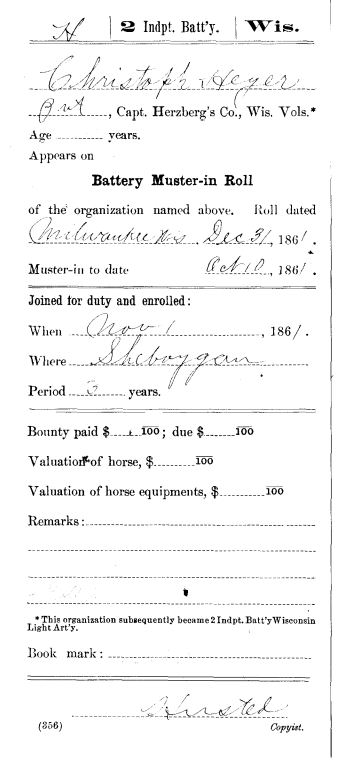 H | 2 Indpt. Batt'y. | Wis.
Christoph Heyer
Pvt, Capt. Herzberg's Co., Wis. Vols.*
Age years.
Appears on
Battery Muster-in Roll
of the organization named above. Roll dated
Milwaukee Wis Dec 31, 1861.
Muster-in to date Oct 10, 1861.
Joined for duty and enrolled:
When Nov 1, 1861.
Where Sheboygan
Period 3 years.
Bounty paid $ 100; due $ 100
Valuation of horse, $ 100
Valuation of horse equipments, $ 100
Remarks:
* This organization subsequently became 2 Indpt. Batt'y Wisconsin
Light Art'y.
Book mark:
Husted
(356) Copyist.